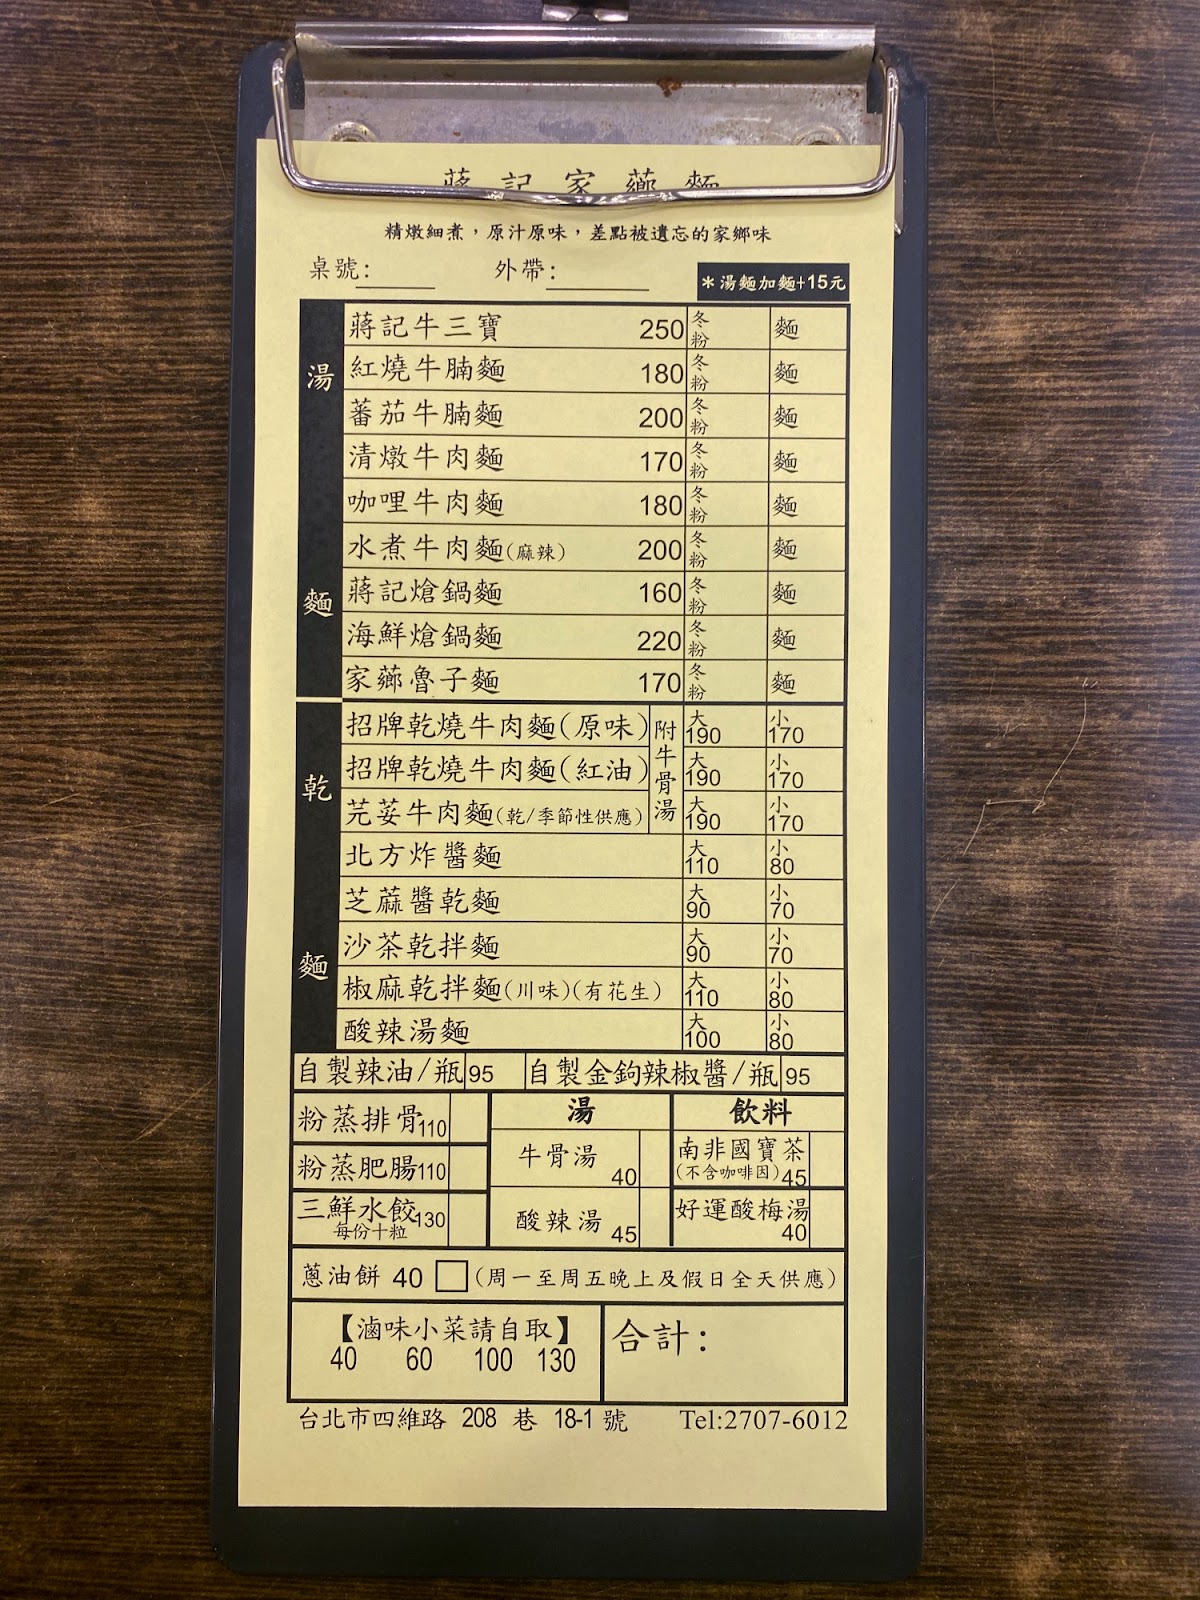 蔣記家薌麵
精燉細煮，原汁原味，差點被遺忘的家鄉味
桌號： 外帶： ＊湯麵加麵+15元
湯麵
蔣記牛三寶 250 冬粉 麵
紅燒牛腩麵 180 冬粉 麵
蕃茄牛腩麵 200 冬粉 麵
清燉牛肉麵 170 冬粉 麵
咖哩牛肉麵 180 冬粉 麵
水煮牛肉麵(麻辣) 200 冬粉 麵
蔣記熗鍋麵 160 冬粉 麵
海鮮熗鍋麵 220 冬粉 麵
家薌魯子麵 170 冬粉 麵
乾麵
招牌乾燒牛肉麵(原味) 附牛骨湯 大190 小170
招牌乾燒牛肉麵(紅油) 大190 小170
芫荽牛肉麵(乾/季節性供應) 大190 小170
北方炸醬麵 大110 小80
芝蔴醬乾麵 大90 小70
沙茶乾拌麵 大90 小70
椒麻乾拌麵(川味)(有花生) 大110 小80
酸辣湯麵 大100 小80
自製辣油/瓶 95 自製金鉤辣椒醬/瓶 95
粉蒸排骨110
粉蒸肥腸110
三鮮水餃130
每份十粒
湯
牛骨湯 40
酸辣湯 45
飲料
南非國寶茶
(不含咖啡因) 45
好運酸梅湯
40
蔥油餅 40 (周一至周五晚上及假日全天供應)
【滷味小菜請自取】
40 60 100 130
合計：
台北市四維路 208 巷 18-1 號 Tel:2707-6012